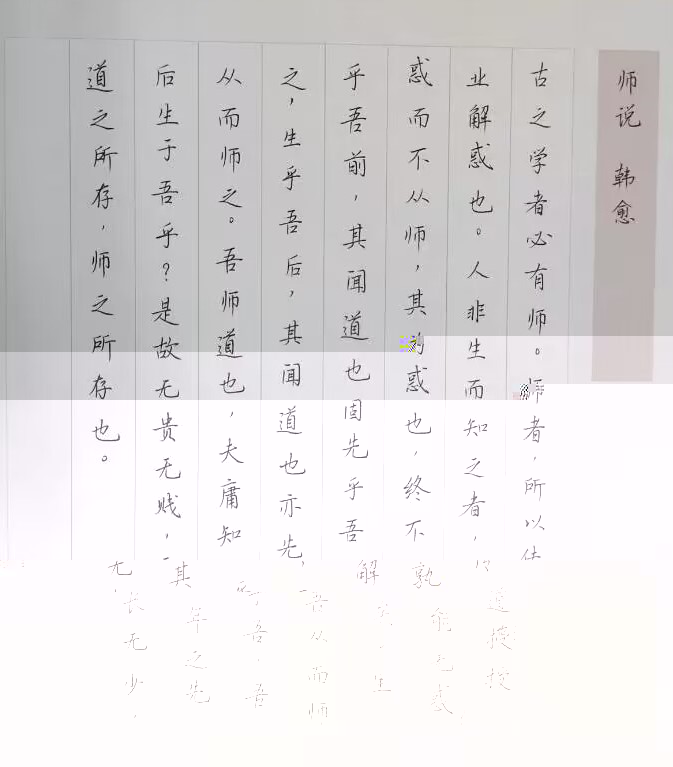 师说 韩愈
古之学者必有师。师者，所以传道授
业解惑也。人非生而知之者，孰能无惑
惑而不从师，其为惑也，终不解矣。生
乎吾前，其闻道也固先乎吾，吾从而师
之，生乎吾后，其闻道也亦先乎吾，吾
从而师之。吾师道也，夫庸知其年之先
后生于吾乎？是故无贵无贱，无长无少，
道之所存，师之所存也。